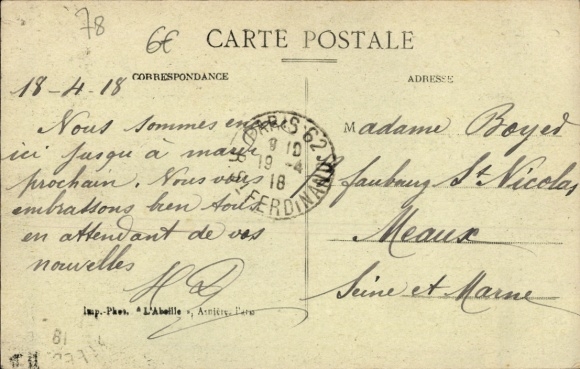 78
6€
CARTE POSTALE
CORRESPONDANCE
ADRESSE
18-4-18
Nous sommes
ici jusqu'à
prochain. Nous vous
embrassons bien tous
en attendant de vos
nouvelles
PARIS 62
19 -4
18
FERDINAND
Madame Boyer
faubourg St Nicolas
Meaux
Seine et Marne
Imp.-Phot. « L'Abeille », Asnières, Paris